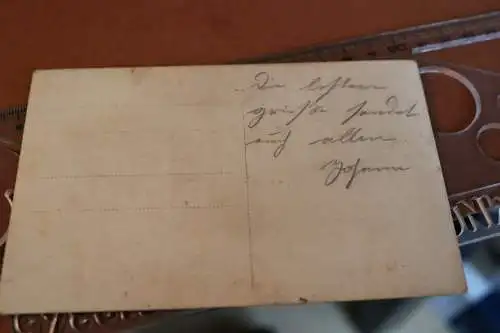 Die besten
grüße sendet
euch allen
Johann